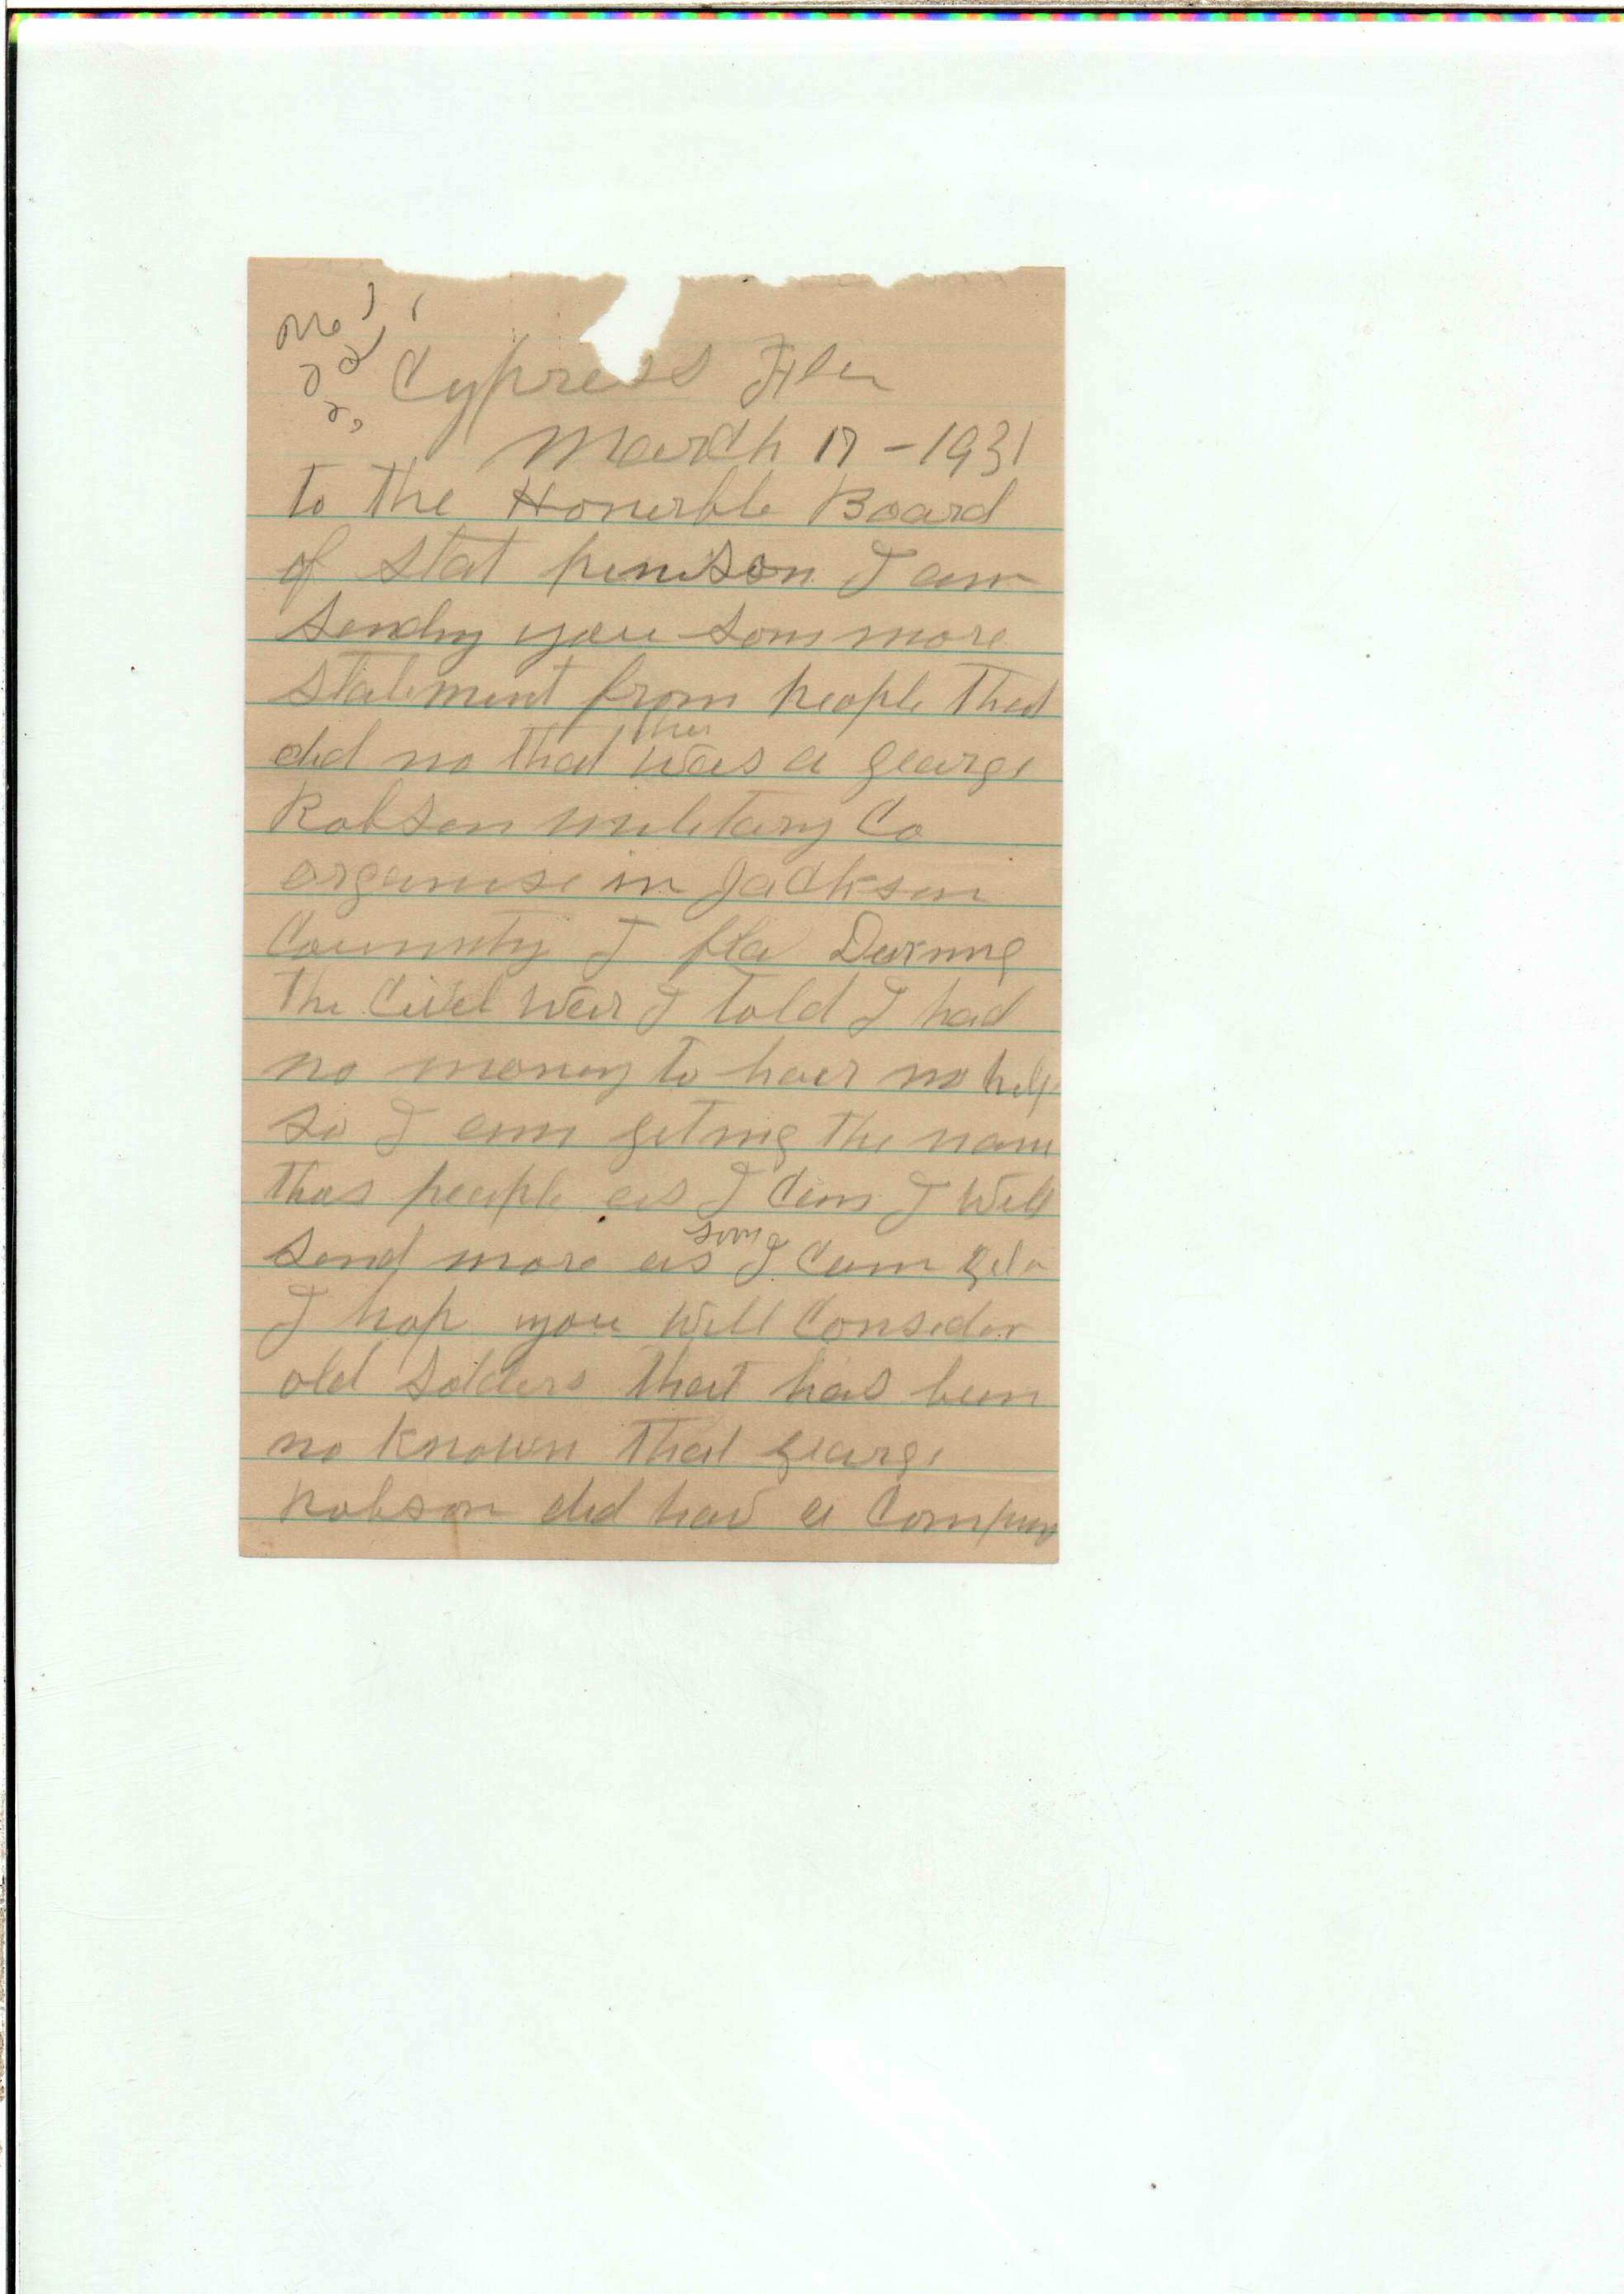 No
Cypress Fla
March 17 - 1931
to the Honerble Board
of Stat penison I am
Sending you som more
Statement from people that
did no that ther was a george
Robson military Co
organise in Jackson
County I fla During
the Civel War I told I had
no money to haer no help
So I am geting the nam
thas people as I Can I will
Send more as som I Can
I hop you will Consider
old Solders that has ben
no known that george
Robson did hav a Company